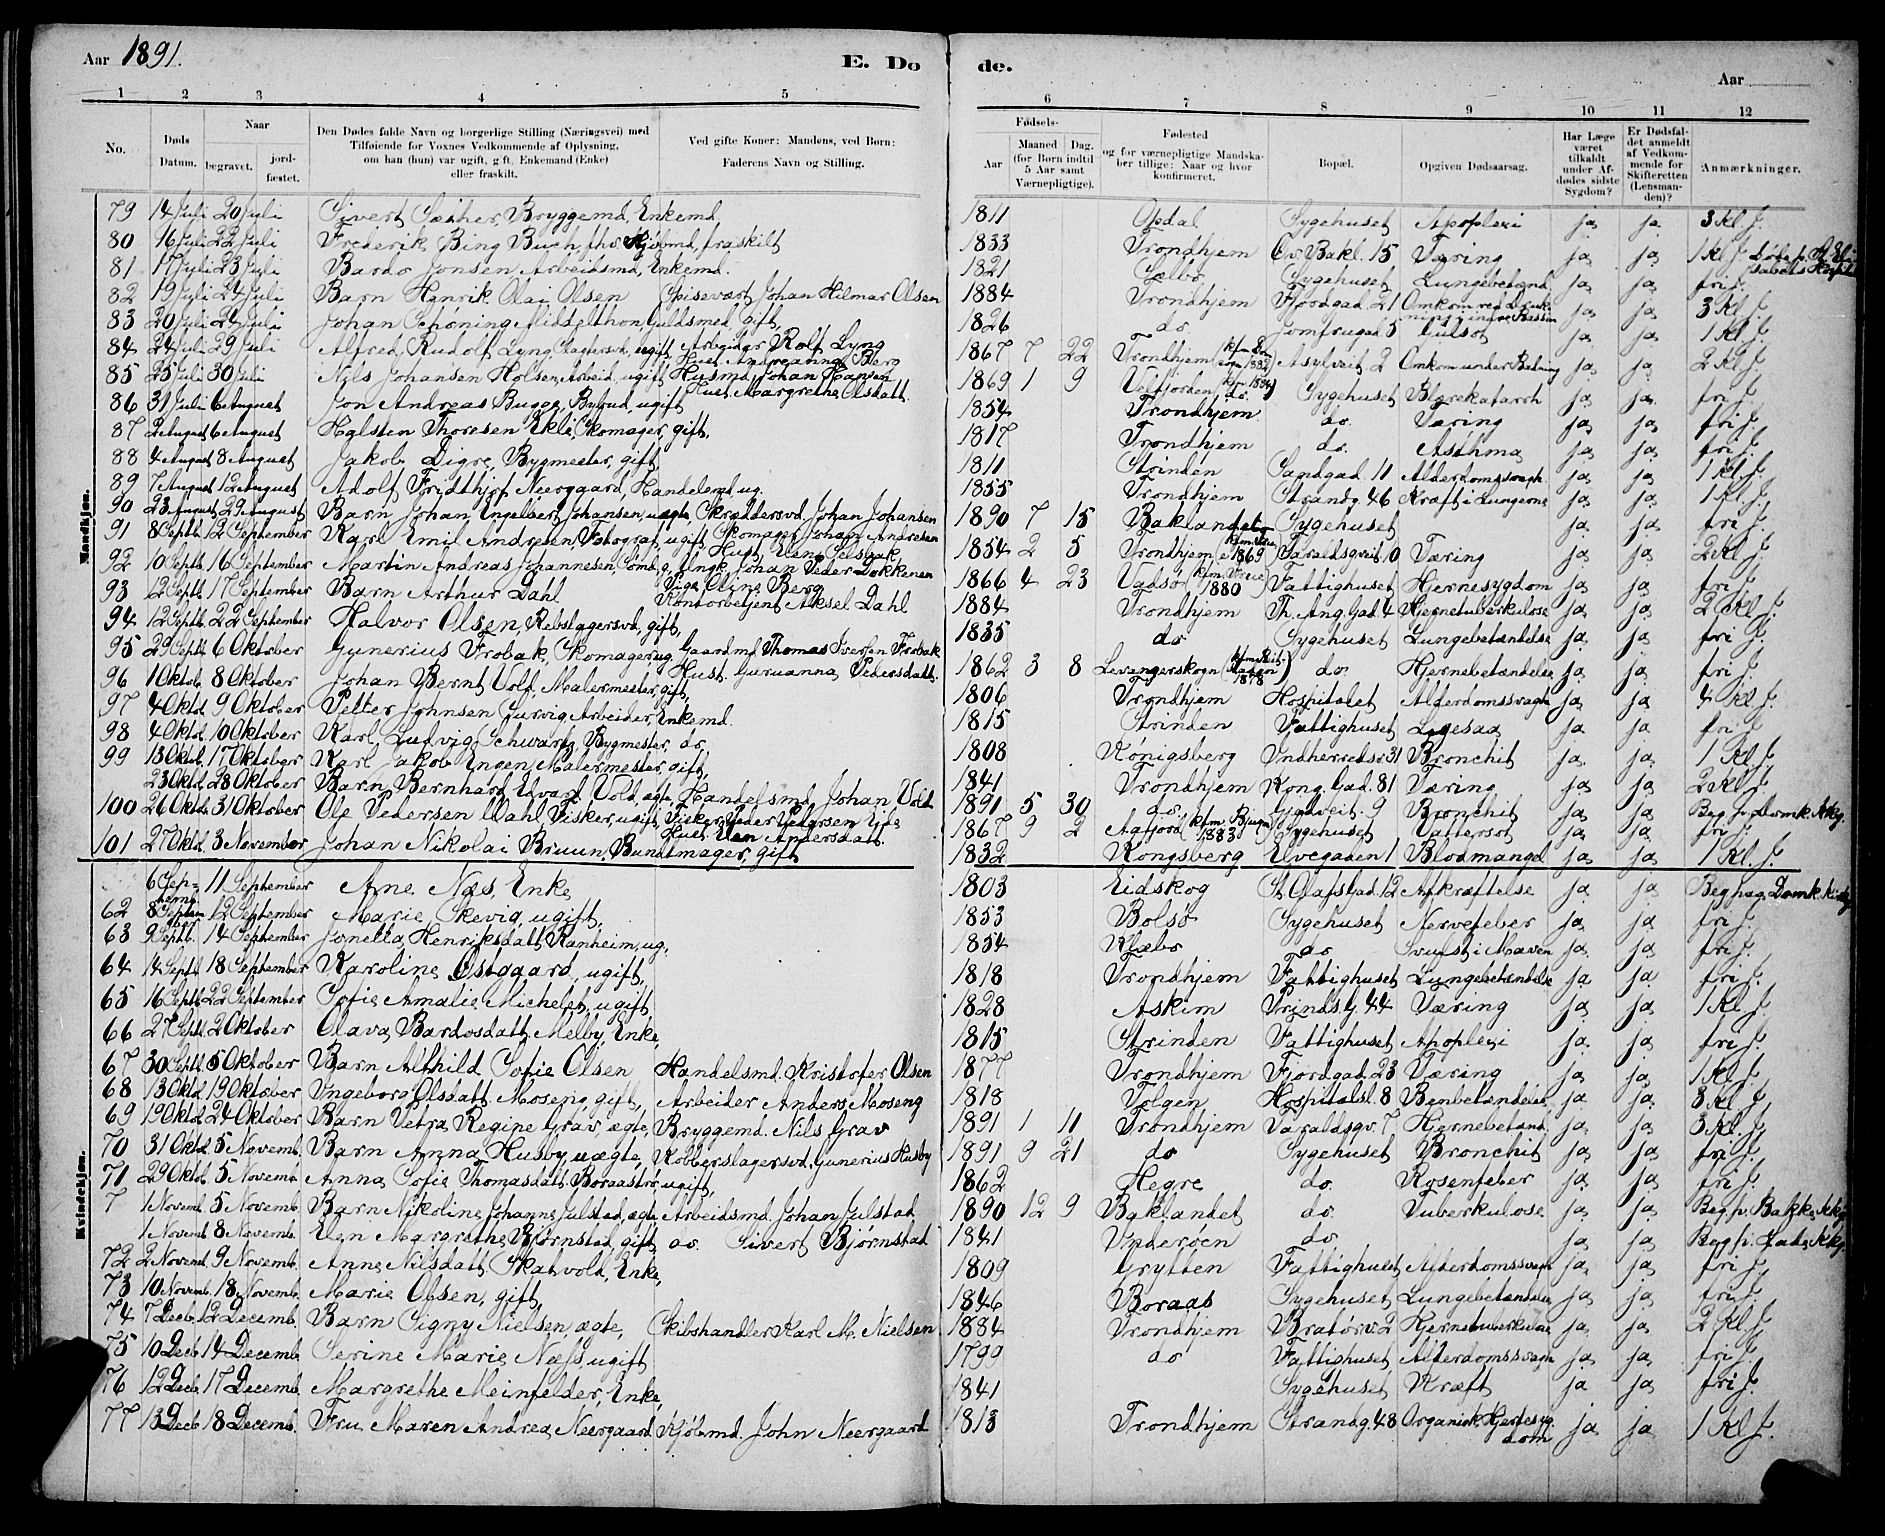 Aar 1891.
E. Do de.
Aar
1 2 3 4 5 6 7 8 9 10 11 12
No.
Døds Datum.
Naar
begravet.
jord-
fæstet.
Den Dødes fulde Navn og borgerlige Stilling (Næringsvei) med
Tilføiende for Voxnes Vedkommende af Oplysning,
om han (hun) var ugift, gift, Enkemand (Enke)
eller fraskilt.
Ved gifte Koner: Mandens, ved Børn:
Faderens Navn og Stilling.
Fødsels-
Aar
Maaned
(for Børn indtil
5 Aar samt
Værnepligtige).
Dag.
Fødested
og for værnepligtige Mandska-
ber tillige: Naar og hvor
konfirmeret.
Bopæl.
Opgiven Dødsaarsag.
Har Læge
været
tilkaldt
under Af-
dødes sidste
Sygdom?
Er Dødsfal-
det anmeldt
af Vedkom-
mende for
Skifteretten
(Lensman-
den)?
Anmærkninger.
Mandkjøn.
79 14 Juli 20 Juli Sivert Sæther, Bryggemd, Enkemd. 1811 Opdal Sygehuset Apoplexi ja ja 3 Kl. J.
80 16 Juli 22 Juli Frederik Bing Buch, fhv. Kjøbmd, fraskilt 1833 Trondhjem Øv. Bakl. 15 Tæring ja ja 1 Kl J.
81 17 Juli 23 Juli Bardo Jonsen Arbeidsmd, Enkemd. 1821 Sælbo Sygehuset Lungebetænd. ja ja fri J.
82 19 Juli 24 Juli Barn Henrik Olai Olsen Spisevært Johan Hilmar Olsen 1884 Trondhjem Fjordgad. 21 Omkom ved Druk- ning i indre Bassin ja ja 3 Kl J.
83 20 Juli 24 Juli Johan Schøning Middelthon, Guldsmed, gift, 1826 do. Jomfrugad 5 ja ja 1 Kl J.
84 24 Juli 29 Juli Alfred Rudolf Lyng, Slagtersvd, ugift, Arbeider Rolf Lyng Hust. Berg 1867 7 22 Trondhjem Asylveit 2 Omkom under Badning ja ja 2 Kl J.
85 25 Juli 30 Juli Nils Johansen Holsen, Arbeid, ugift Husmd. Johan Hansen Hust. Margrethe Olsdatt. 1869 1 9 Velfjorden Sygehuset Blærekatarrh ja ja fri J.
86 31 Juli 6 August Jon Andreas Bugge, Bybud, ugift 1854 Trondhjem do. Tæring ja ja fri J.
87 2 August 6 August Halsten Thoresen Ekli, Skomager, gift, 1817 Trondhjem do. Asthma ja ja fri J.
88 4 August 8 August Jakob Digre, Bygmester, gift 1811 Strinden Sandgad. 11 Alderdomssvagh ja ja 1 Kl J.
89 7 August 12 August Adolf Fridthjof Neergaard, Handelsmd, ug. 1855 Trondhjem Strandg. 46 Kræft i Lungerne ja ja 1 Kl J.
90 23 August 29 August Barn Johan Engelbert Johansen, uægte, Skræddersvd Johan Johansen 1890 7 15 Baklandet Sygehuset ja ja fri J.
91 8 Septb. 12 September Karl Emil Andresen, Fotograf, ugift Skomager Johan Andresen Hust. Elen Selsbak 1854 2 5 Trondhjem 1869 Taraldsgveit. 0 Tæring ja ja 2 Kl J.
92 10 Septb. 16 September Martin Andreas Johannesen, Lomb, g, Ungk. Johan Peder Dokkenen Pige Eline Berg 1866 4 23 Vadsø 1880 Fattighuset Hjernesygdom ja ja fri J.
93 12 Septb. 17 September Barn Arthur Dahl Kontorbetjent Aksel Dahl 1884 Trondhjem Th. Ang. Gad. 4 Hjernetuberkulose ja ja 2 Kl J.
94 12 Septb. 22 September Halvor Olsen, Rebslagersvd, gift, 1835 do Sygehuset Lungebetændelse ja ja fri J.
95 29 Septb. 6 Oktober Gunerius Frobak, Skomager, ug. Gaardmd Thomas Iversen Frobak Hust. Guruanna Pedersdatt. 1862 3 8 Levangerskogn 1878 do. Hjernebetændelse ja ja fri J.
96 1 Oktob. 8 Oktober Johan Bernt Vold, Malermester, gift, 1806 Trondhjem Hospitalet Alderdomssvagh ja ja 4 Kl. J.
97 4 Oktob. 9 Oktober Petter Johnsen Gurvig, Arbeider, Enkemd. 1815 Strinden Fattighuset Lægesaa ja ja fri J.
98 4 Oktob. 10 Oktober Karl Ludvig Schwartz, Bygmester, do, 1808 Königsberg Indherredsv 31 Bronchit ja ja 1 Kl. J.
99 13 Oktob. 17 Oktober Karl Jakob Engen, Malermester, gift, 1841 Trondhjem Kong. Gad. 81 Tæring ja ja 2 Kl. J.
23 Oktob. 28 Oktober Barn Bernhard Edvard Vold, ægte, Handelsmd. Johan Vold 1891 5 30 do. 9 Bronchit ja ja Beg. p. Domk. Kkg.
100 26 Oktob. 31 Oktober Ole Pedersen Dahl, Fisker, ugift, Fisker Peder Pedersen Hust. Elen Andersdatt. 1867 9 2 Aafjord 1883 Sygehuset Vattersot ja ja fri J.
101 27 Oktob. 3 November Johan Nikolai Bruun, Buntmager, gift 1832 Kongsberg Elvegaden 1 Blodmangel ja ja 1 Kl. J.
Kvindekjøn.
6 Septemb. 11 September Ane Næs, Enke 1803 Eidskog St. Olafs Gad. 12 Afkræftelse ja ja Beg. paa Domk. Kirkg.
62 8 September 12 September Marie Skevig, ugift, 1853 Bolsø Sygehuset Nervefeber ja ja fri J.
63 9 Septb. 14 September Jonetta Henriksdatt Ranheim, ug, 1854 Klæbo do Svulst i Maven ja ja fri J.
64 14 Septb. 18 September Karoline Østgaard, ugift, 1818 Trondhjem Fattighuset Lungebetændelse ja ja fri J.
65 16 Septb. 22 September Sofie Amalie Michelet, ugift, 1828 Askim Prindsg. 44 Tæring ja ja 1 Kl. J.
66 27 Septb. 2 Oktober Olava Bardosdatt. Melby, Enke, 1815 Strinden Fattighuset Apoplexi ja ja fri J.
67 30 Septb. 5 Oktober Barn Althild Sofie Olsen Handelsmd. Kristofer Olsen 1877 Trondhjem Fjordgad. 23 Tæring ja ja 1 Kl J.
68 13 Oktob. 19 Oktober Ingeborg Olsdatt. Moseng, gift, Arbeider Anders Moseng 1818 Tolgen Hospitalsl. 8 Benbetændelse ja ja 3 Kl. J.
69 19 Oktob. 24 Oktober Barn Petra Regine Grav, ægte, Bryggemd. Nils Grav 1891 1 11 Trondhjem Taraldsgv. 7 Hjernebetænd. ja ja 3 Kl. J.
70 31 Oktob. 5 Novemb. Barn Anna Husby, uægte, Kobberslagersvd. Gunerius Husby 1891 9 21 do Sygehuset Bronchit ja ja fri J.
71 29 Oktob. 5 Novemb. Anna Sofie Thomasdatt. Boraastrø, ugift, 1862 Hegre do. Rosenfeber ja ja fri J.
7 1 Novemb. 5 Novemb. Barn Nikoline Johanne Julstad, ægte Arbeidsmd. Johan Julstad 1890 12 9 Baklandet do. Tuberkulose ja ja Beg. p. Bakke Kkg
1 Novemb. 8 Novemb. Elen Margrethe Bjørnstad, gift, do. Sivert Bjørnstad 1841 Inderøen do. ja ja Beg. p. Lade Kkg
72 2 Novemb. 9 Novemb. Anne Nilsdatt Skatvold, Enke, 1809 Grytten Fattighuset Alderdomssvagh ja ja fri J.
73 10 Novemb. 18 Novemb. Marie Olsen, gift, 1846 Boraas Sygehuset Lungebetændelse ja ja fri J.
74 7 Decb. 12 Decemb. Barn Signy Nielsen, ægte, Skibshandler Karl M. Nielsen 1884 Trondhjem Bratørv. 2 Hjernetuberkulose ja ja 2 Kl. J.
75 10 Decb. 14 Decemb. Serine Marie Næss, ugift 1799 do Fattighuset Alderdomssvagh ja ja fri J.
76 12 Decb. 17 Decemb. Margrethe Meinfelder, Enke, 1841 Sygehuset Kræft ja ja fri J.
77 13 Decb. 18 Decemb. Fru Maren Andrea Neergaard Kjøbmd. John Neergaard 1813 Trondhjem Strandg. 48 Organisk Hjertesyg- dom ja ja 1 Kl J.